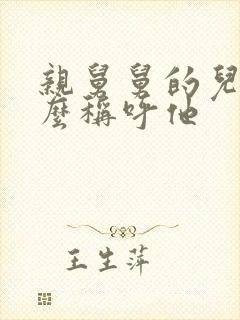 親舅舅的兒
麼稱呼他
王生萍